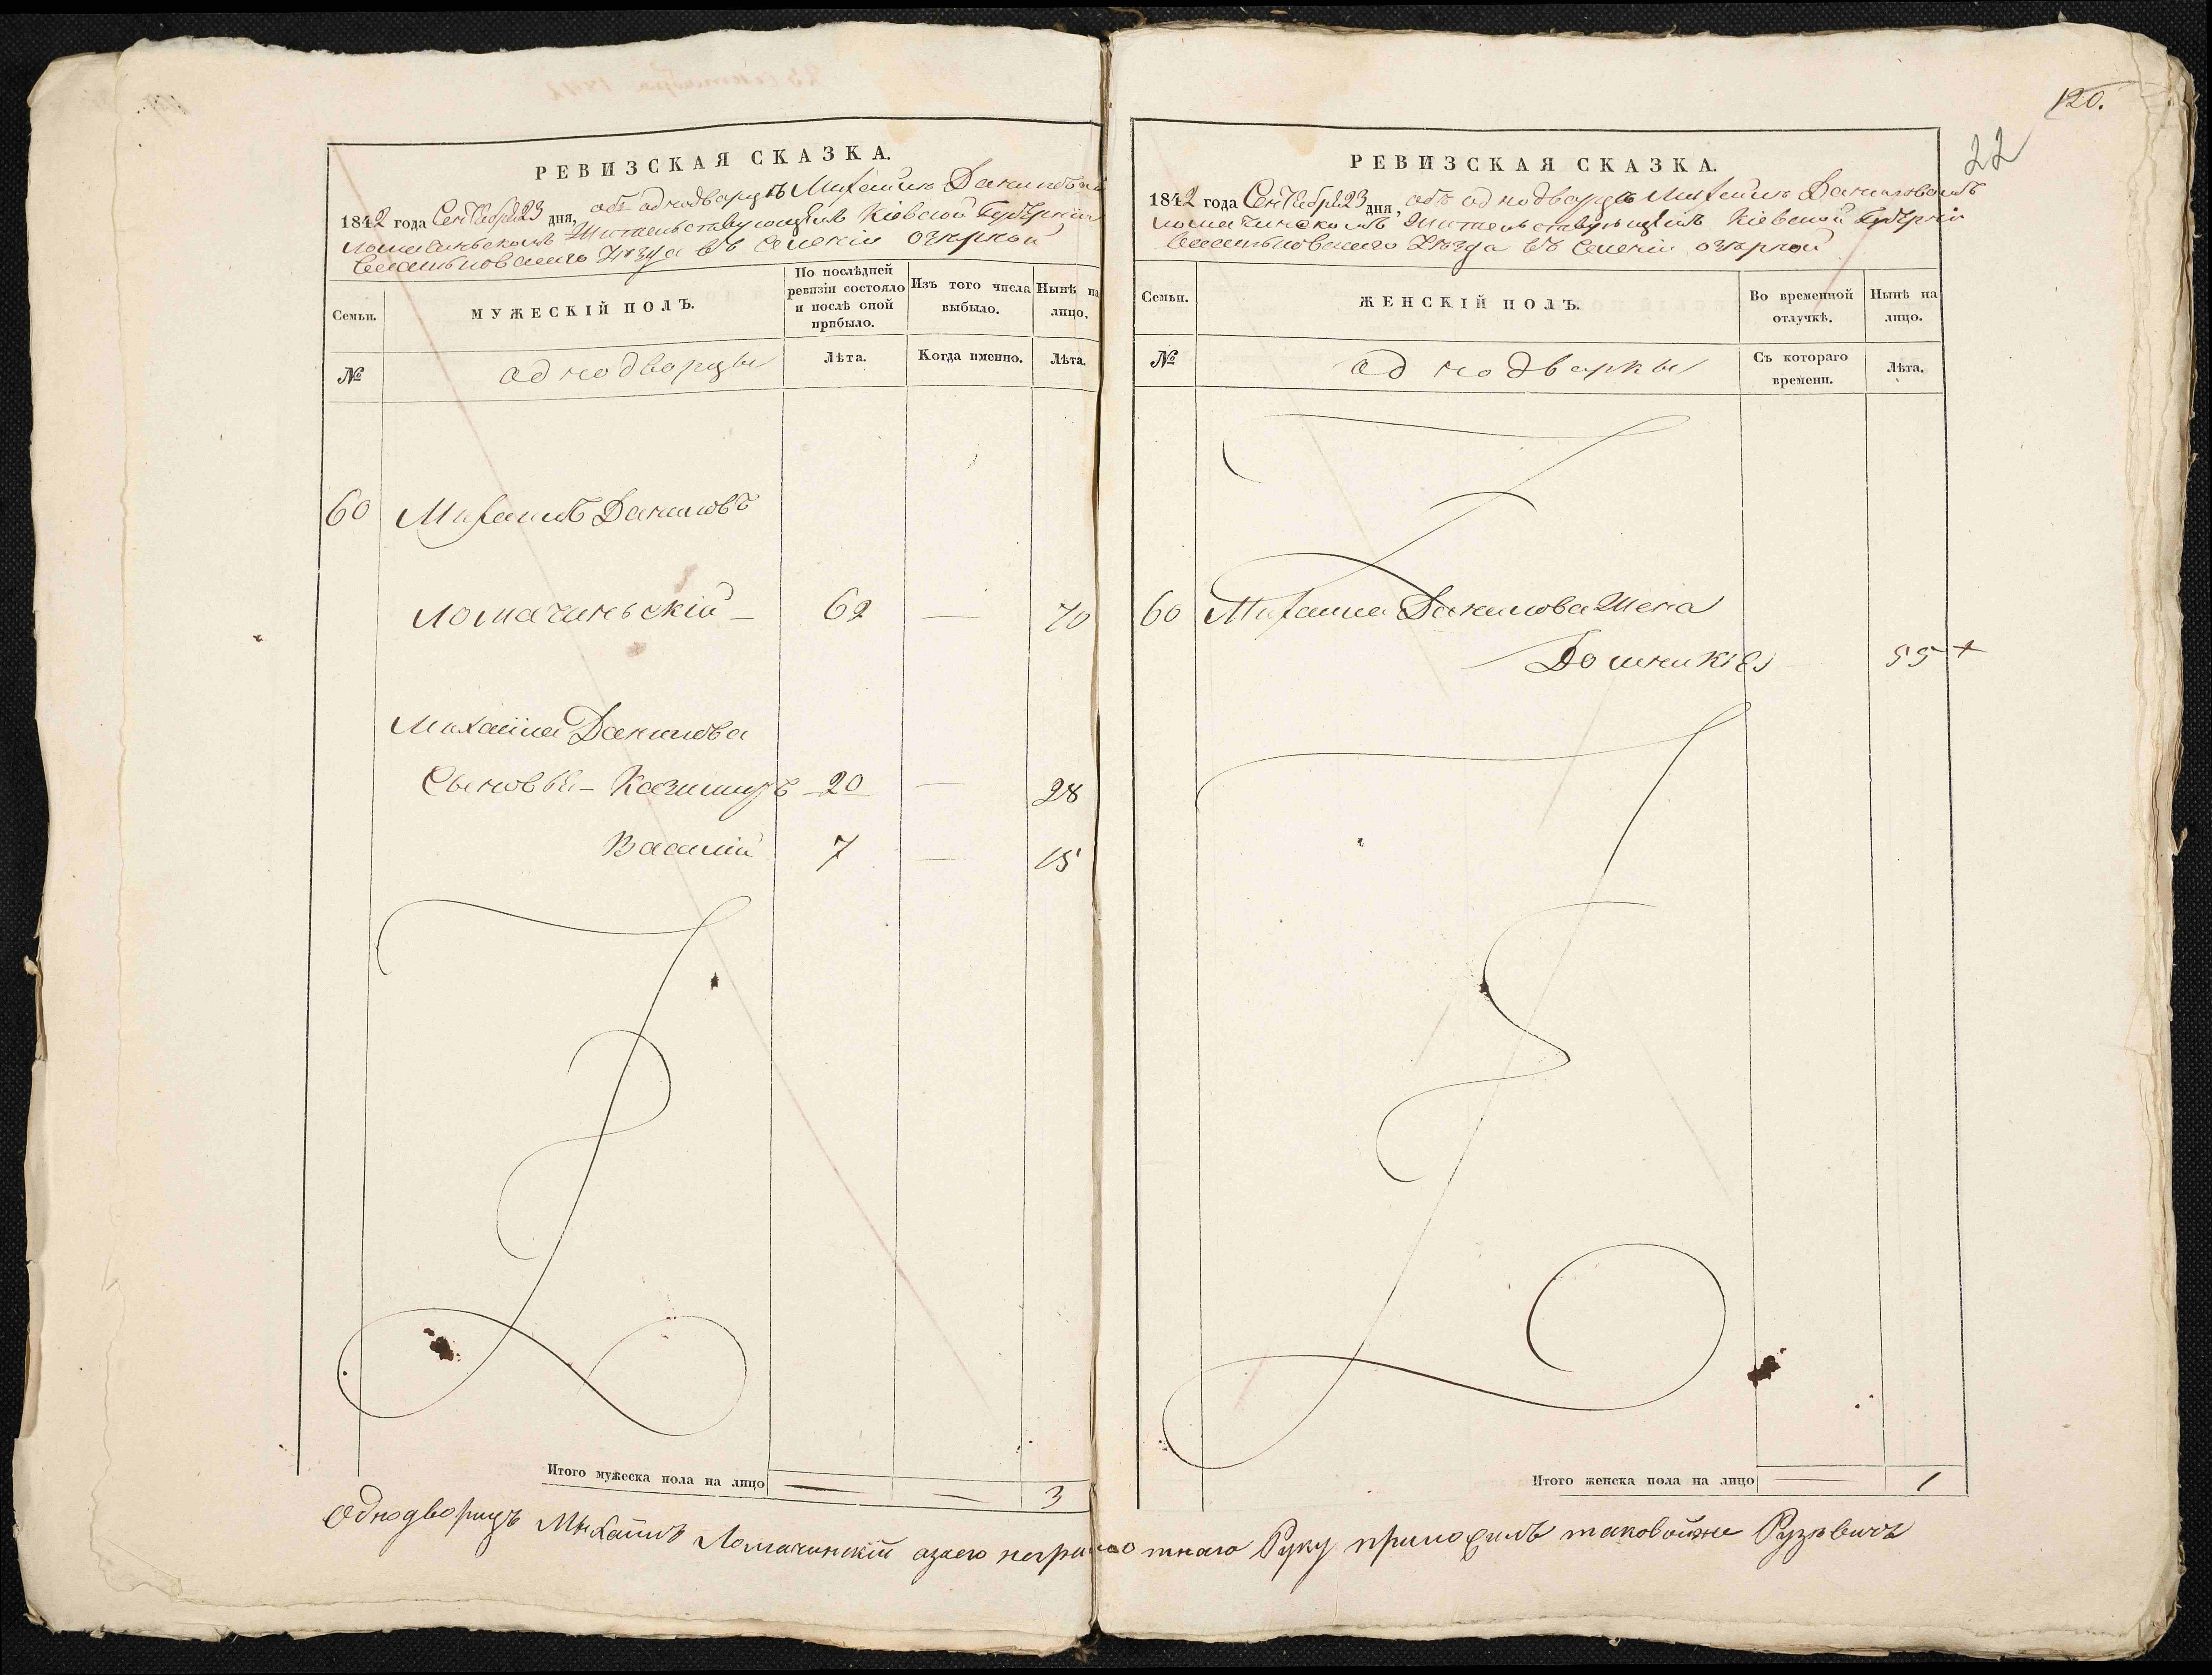 РЕВИЗСКАЯ СКАЗКА.
1842 года Сентебря 23 дня, объ однодворцѣ Михаилѣ Даниловом
Ломачинскомъ Жительствующемъ Кіевской Губерніи
Васильковскаго Уѣзда въ Селеніи Озѣрной
Семьи.
МУЖЕСКІЙ ПОЛЪ.
По послѣдней ревизіи состояло и послѣ оной прибыло.
Изъ того числа выбыло.
Нынѣ на лицо.
№
однодворцы
Лѣта.
Когда именно.
Лѣта.
60 Михаилъ Даниловъ
Ломачиньскій — 62 — 70
Михаила Данилова
Сыновья — Казимиръ — 20 — 28
Василий 7 — 15
Итого мужеска пола на лицо — — 3
120.
22
РЕВИЗСКАЯ СКАЗКА.
1842 года Сентебря 23 дня, объ однодворцѣ Михаилѣ Даниловомъ
Ломачинскомъ Жительствующемъ Кіевской Губерніи
Васильковскаго Уѣзда въ Селеніи Озѣрной
Семьи.
ЖЕНСКІЙ ПОЛЪ.
Во временной отлучкѣ.
Нынѣ на лицо.
№
однодворки
Съ котораго времени.
Лѣта.
60 Михаила Данилова Жена
55 +
Итого женска пола на лицо — 1
Однодворицъ Михаилъ Ломачинскій азаего неграмотнаго Руку приложилъ таковойже Рузѣвичъ